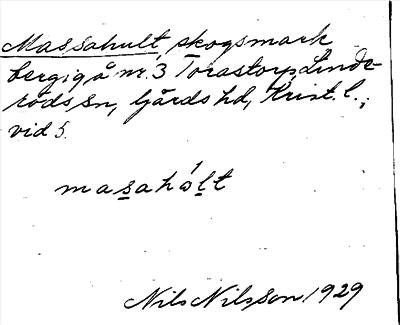 Massahult, skogsmark
bergig å nr. 3 Torastorp, Linde-
röds sn, Gärds hd, Krist. l.,
vid 5.
masahúlt
Nils Nilsson 1929